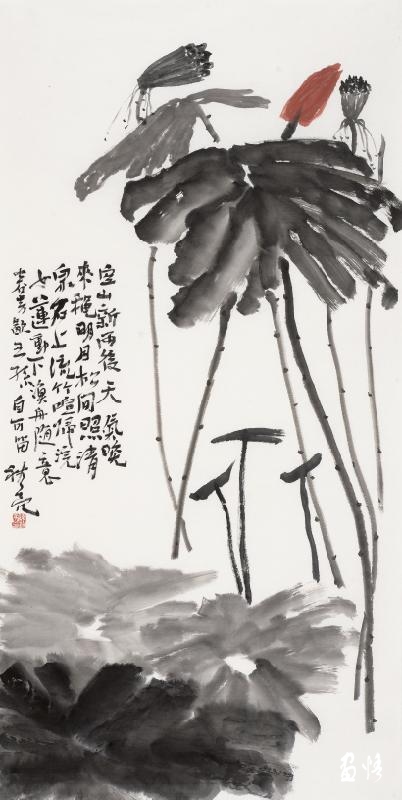 空山新雨後天氣晚
來穐明月松间照清
泉石上流竹喧歸浣
女蓮動下渔舟随意
春芳歇王孫自可留